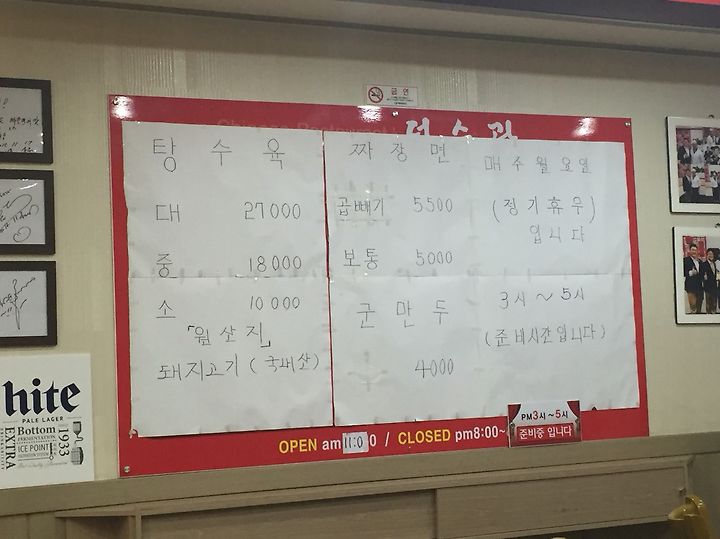 금연
탕수육
대 27000
중 18000
소 10000
「원산지」
돼지고기 (국내산)
짜장면
곱빼기 5500
보통 5000
군만두
4000
매주월요일
(정기휴무)
입니다
3시~5시
(준비시간입니다)
OPEN am 11:00 / CLOSED pm8:00~
PM3시~5시
준비중 입니다
hite
PALE LAGER
EXTRA
Bottom
FERMENTATION
ICE POINT
1933